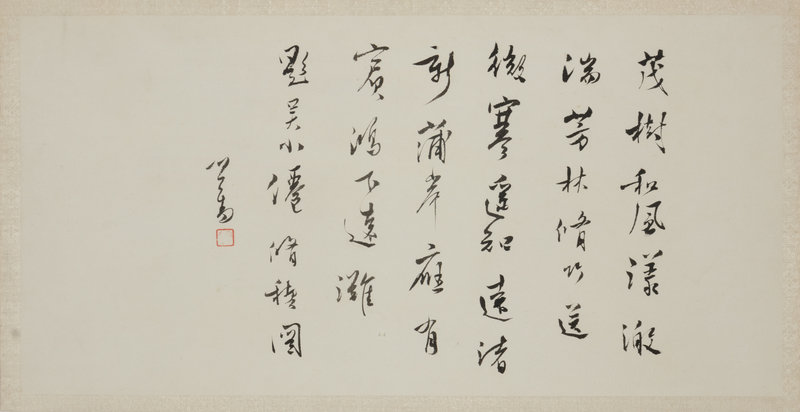 茂樹和風漾激
湍芳林脩竹送
微寒遥知遠渚
新蒲岸應有
賓鴻下遠灘
題吳小僊脩禊圖
心畬